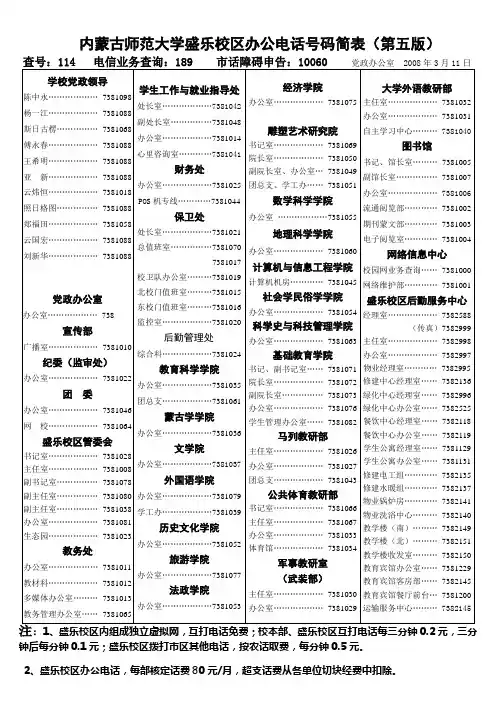 内蒙古师范大学盛乐校区办公电话号码简表（第五版）
查号：114 电信业务查询：189 市话障碍申告：10060 党政办公室 2008年3月11日
学校党政领导
陈中永……………… 7381098
杨一江……………… 7381088
斯日古楞…………… 7381068
傅永春……………… 7381088
王希明……………… 7381088
亚 新……………… 7381088
云炜恒……………… 7381018
照日格图…………… 7381088
郑福田……………… 7381058
云国宏……………… 7381088
刘新华……………… 7381088
党政办公室
办公室…………… 738
宣传部
广播室……………… 7381010
纪委（监审处）
办公室……………… 7381022
团 委
办公室……………… 7381046
网 校……………… 7381064
盛乐校区管委会
书记室……………… 7381028
主任室……………… 7381008
副书记室…………… 7381078
副主任室…………… 7381080
副主任室…………… 7381038
办公室……………… 7381081
生态园……………… 7381023
教务处
办公室……………… 7381011
教材科……………… 7381012
多媒体办公室……… 7381013
教务管理办公室…… 7381065
学生工作与就业指导处
处长室………………7381042
副处长室……………7381048
办公室………………7381014
心里咨询室…………7381041
财务处
办公室………………7381025
POS机专线…………7381044
保卫处
处长室………………7381021
总值班室……………7381070
7381017
校卫队办公室………7381019
北校门值班室………7381015
东校门值班室………7381016
监控室………………7381020
后勤管理处
综合科………………7381024
教育科学学院
办公室………………7381035
团总支………………7381061
蒙古学学院
办公室………………7381036
文学院
办公室………………7381087
外国语学院
办公室………………7381079
学工办………………7381039
历史文化学院
办公室………………7381052
旅游学院
办公室………………7381077
法政学院
办公室………………7381053
经济学院
办公室……………… 7381075
雕塑艺术研究院
书记室……………… 7381069
院长室……………… 7381050
副院长室、办公室… 7381049
团总支、学工办…… 7381051
数学科学学院
办公室 ………………7381055
地理科学学院
办公室……………… 7381060
计算机与信息工程学院
计算机机房………… 7381045
社会学民俗学学院
办公室……………… 7381054
科学史与科技管理学院
办公室……………… 7381063
基础教育学院
书记、副书记室…… 7381071
院长室……………… 7381072
副院长室…………… 7381073
办公室……………… 7381076
学生管理办公室…… 7381082
马列教研部
主任室……………… 7381026
办公室……………… 7381027
团总支……………… 7381043
公共体育教研部
书记室……………… 7381066
主任室……………… 7381067
办公室……………… 7381033
体育馆……………… 7381034
军事教研室
（武装部）
主任室……………… 7381030
办公室……………… 7381029
大学外语教研部
主任室……………… 7381032
办公室……………… 7381031
自主学习中心……… 7381040
图书馆
书记、馆长室……… 7381005
副馆长室…………… 7381007
办公室……………… 7381006
流通阅览部………… 7381002
期刊文献部………… 7381003
电子阅览室………… 7381004
网络信息中心
校园网业务查询…… 7381000
网络维护部………… 7381001
盛乐校区后勤服务中心
经理室……………… 7382588
（传真）7382999
主任室……………… 7382998
办公室……………… 7382997
物业经理室………… 7382995
修建中心经理室…… 7382136
绿化中心经理室…… 7382996
绿化中心办公室…… 7382525
餐饮中心经理室…… 7382118
餐饮中心办公室…… 7382119
学生公寓经理室…… 7381129
学生公寓办公室…… 7381131
修建电工组………… 7382135
修建水暖组………… 7382137
物业锅炉房………… 7382141
物业洗浴中心……… 7382140
教学楼（南）……… 7382149
教学楼（北）……… 7382151
教学楼收发室……… 7382150
教育宾馆办公室…… 7381229
教育宾馆客房部…… 7382145
教育宾馆餐厅前台… 7381200
运输服务中心……… 7382148
注：1、盛乐校区内组成独立虚拟网，互打电话免费；校本部、盛乐校区互打电话每三分钟0.2元，三分
钟后每分钟0.1元；盛乐校区拨打市区其他电话，按农话取费，每分钟0.5元。
2、盛乐校区办公电话，每部核定话费80元/月，超支话费从各单位切块经费中扣除。